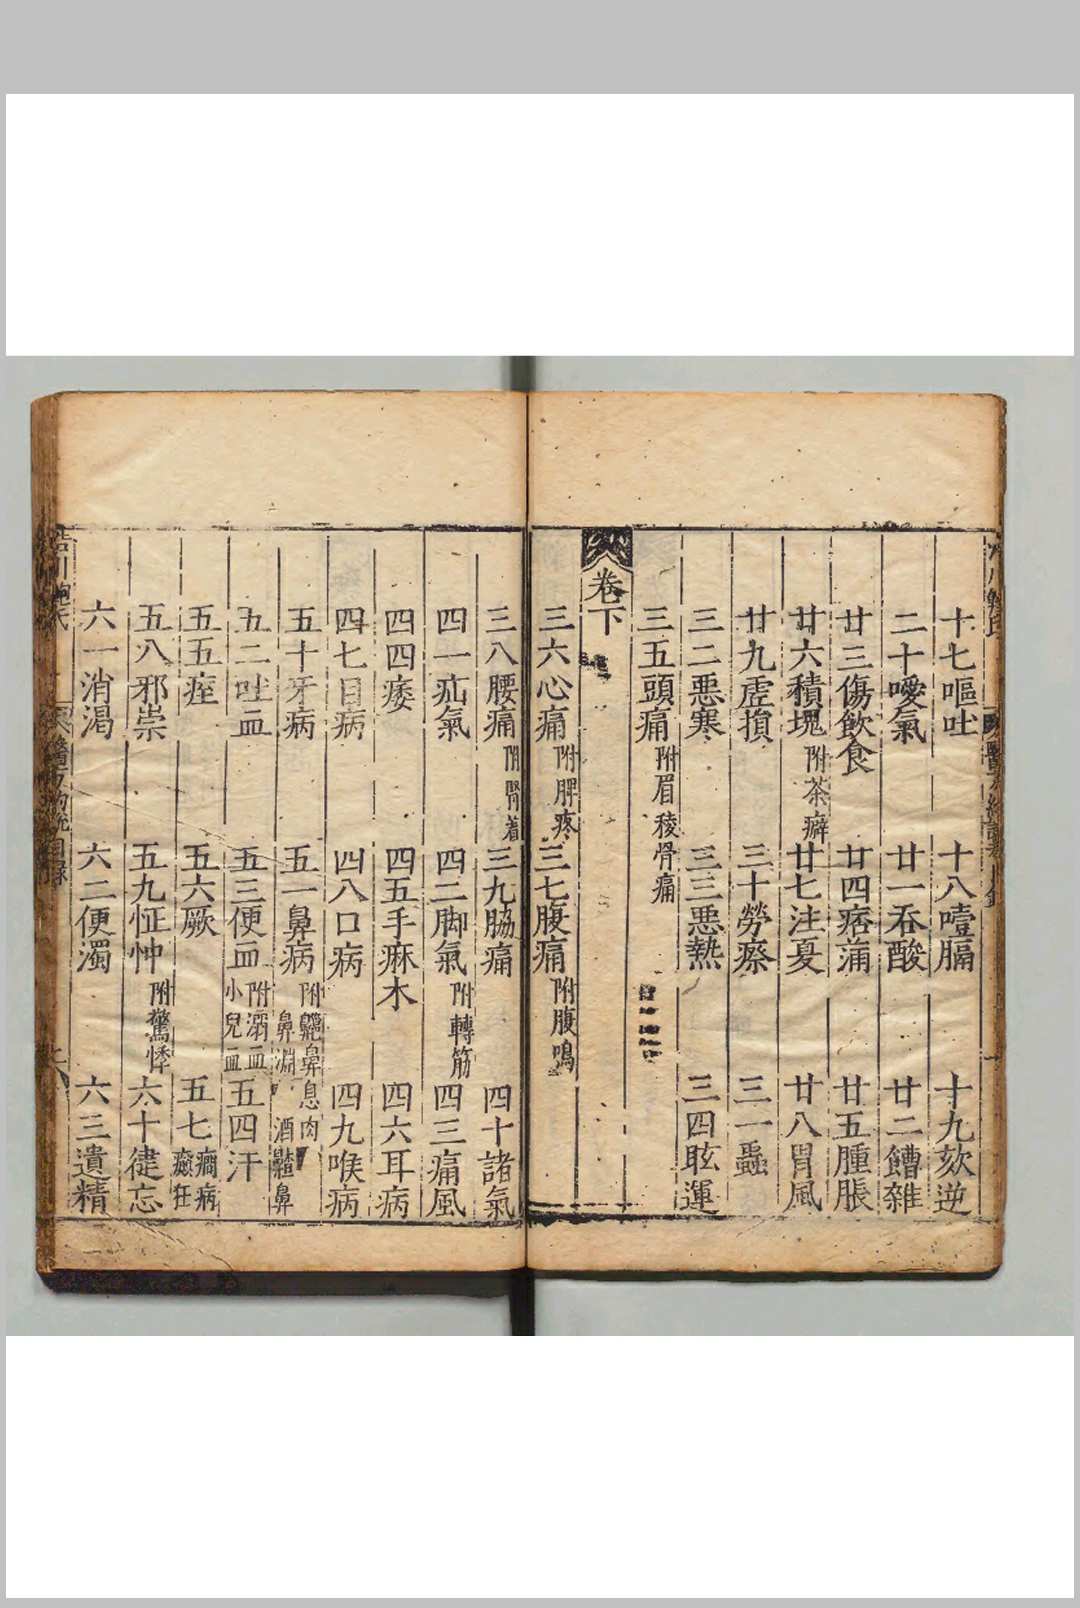 十七嘔吐 十八噎膈 十九欬逆
二十噯氣 廿一吞酸 廿二饋雜
廿三傷飲食 廿四痞滿 廿五腫脹
廿六積塊 附茶癖 廿七注夏 廿八胃風
廿九虛損 三十勞瘵 三一蟲
三二惡寒 三三惡熱 三四眩運
三五頭痛 附眉稜骨痛
卷下
三六心痛 附脾疼 三七腹痛 附腹鳴
三八腰痛 附腎著 三九脇痛 四十諸氣
四一疝氣 四二脚氣 附轉筋 四三痛風
四四痿 四五手麻木 四六耳病
四七目病 四八口病 四九喉病
五十牙病 五一鼻病 附齆鼻息肉 鼻淵 酒齄鼻
五二吐血 五三便血 附溺血 小兒血 五四汗
五五痓 五六厥 五七癇病 癲狂
五八邪祟 五九怔忡 附驚悸 六十健忘
六一消渴 六二便濁 六三遺精